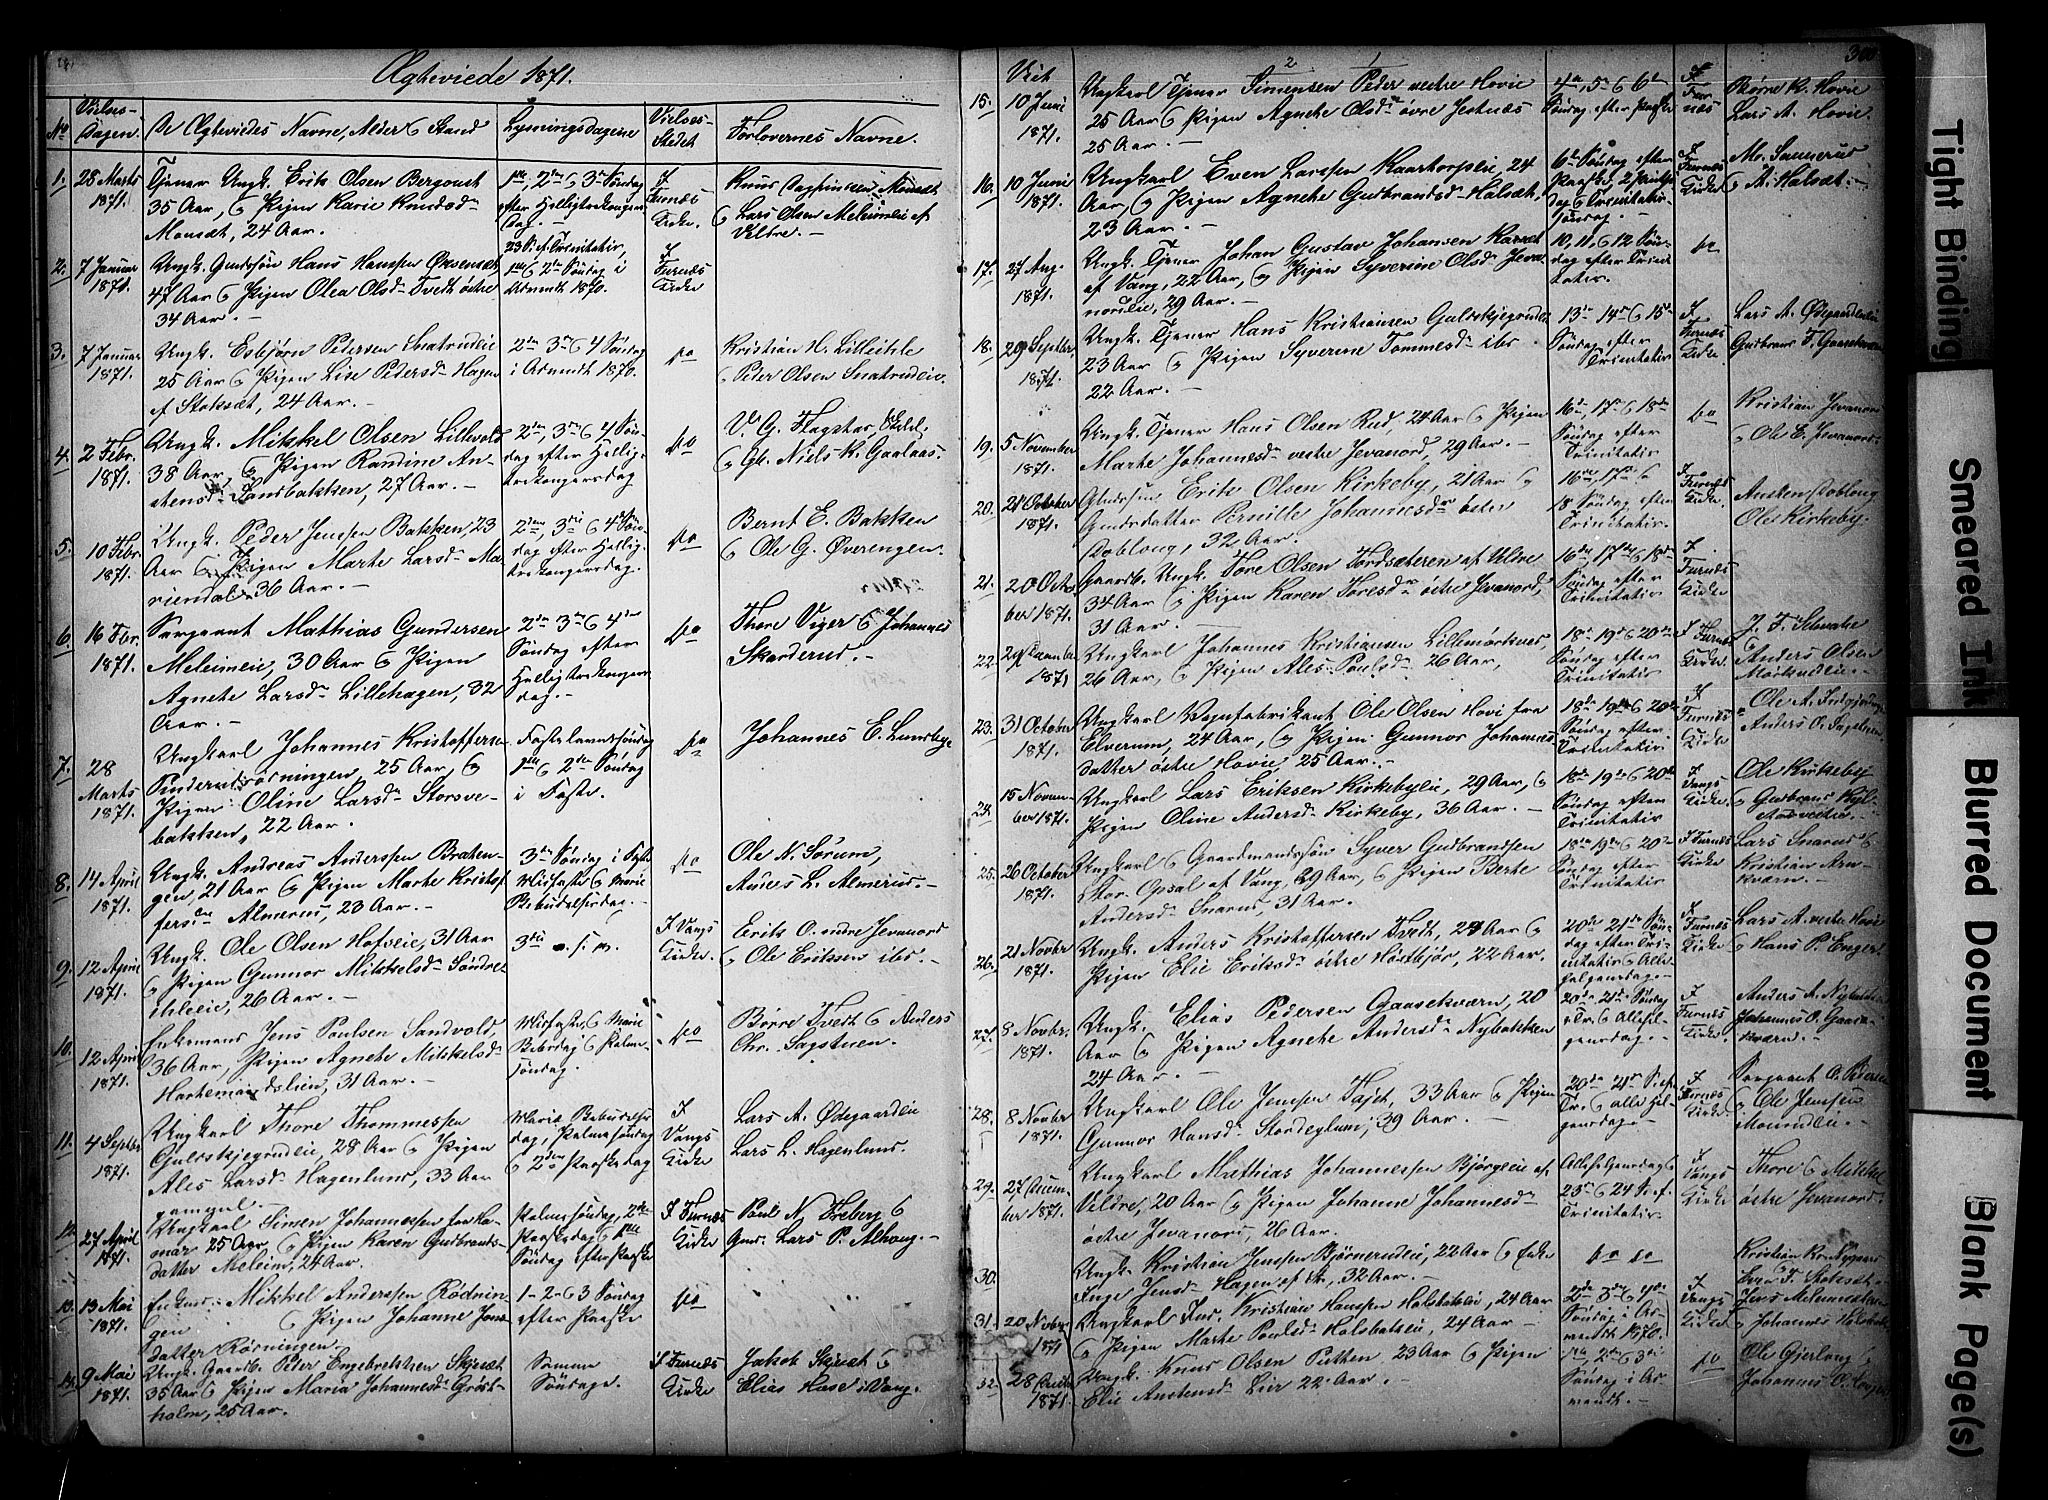 Ægteviede 1871.
No
Vielses-
dagen.
De Ægteviedes Navne, Alder & Stand
Lysningsdagene
Vielses-
Stedet
Forlovernes Navne.
1. 28 Marts 1871.
Tjener Ungk. Erik Olsen Bergoust
35 Aar, & Pigen Karie Knudsdr
Monsæt, 24 Aar.
1ste, 2den & 3de Søndag
efter Helligtrekongers
dag.
I
Furnæs
Kirke.
Lars Olsen Melumeie af
Veldre.
2. 7 Januar 1871.
Ungk. Gmdssøn Hans Hansen
47 Aar & Pigen Olea Olsdr Tvedt østre
34 Aar.
23 S. e. Trinitatis,
1ste & 2den Søndag i
Advendt 1870.
I
Furnæs
Kirke
3. 7 Januar 1871.
Ungk. Esbjørn Pedersen Snatrudeie
25 Aar & Pigen Lise Pedersdr Hagen
af Stoksæt, 24 Aar.
2den 3de & 4 Søndag
i Advendt 1870.
do
Kristian H. Lilleihle
& Peder Olsen Snatrudeie.
4. 2 Febr. 1871.
Ungk. Mikkel Olsen Lillevold
38 Aar, & Pigen Randine An-
stensdr Sandbakken, 27 Aar.
2den, 3de & 4 Søn-
dag efter Hellig-
trekongersdag
do
V. G. Flagstad,
& Gb. Niels K. Gaalaas.
5. 10 Febr. 1871.
Ungk. Peder Jensen Bakken, 23
Aar & Pigen Marte Larsdr Ma-
riendal 36 Aar.
2den, 3de & 4de Søn-
dag efter Hellig-
trekongersdag.
do
Bernt E. Bakken
& Ole G. Øverengen.
6. 16 Febr. 1871.
Sergeant Mathias Gundersen
Melumeie, 30 Aar & Pigen
Agnethe Larsdr Lillehagen, 32
Aar.
2den 3de & 4de
Søndag efter
Helligtrekongers
dag.
do
Thore Viger & Johannes
Skarderud.
7. 28 Marts 1871.
Ungkarl Johannes Kristoffersen
25 Aar, &
Pigen Oline Larsdr Storsve-
bakken, 22 Aar.
Fastelavnssøndag
1ste & 2den Søndag
i Faste.
do
Johannes E. Lundbye
8. 14 April 1871.
Ungk. Andreas Andersen Braten-
gen, 21 Aar & Pigen Marte Kristof-
fersdr Almerud, 23 Aar.
3de Søndag i Faste
Midfaste & Marie
Bebudelsesdag.
do
Ole N. Sørum,
Anders L. Almerud.
9. 12 April 1871.
Ungk. Ole Olsen Hofseie, 31 Aar
& Pigen Gunnor Mikkelsdr Søndre
ihleeie, 26 Aar.
I Vangs
Kirke.
Erik O. nordre Jevanord
& Ole Eriksen ibd.
10. 12 April 1871.
Enkemand Jens Poulsen Sandvold,
36 Aar, Pigen Agnethe Mikkelsdr
31 Aar.
Midfaste, & Marie
Bebudag & Palme-
søndag.
do
Børre Tvedt & Anders
Chr. Sagstuen.
11. 4 September 1871.
Ungkarl Thore Thommessen
Gulskjegrudeie, 28 Aar & Pigen
Ales Larsdr Hagenlund, 33 Aar
gammel.
Marie Bebudelses
dag, Palmesøndag
& 2den Paaskedag
I
Vangs
Kirke
Lars A. Ødegaardeie
Lars L. Hagenlund.
12. 27 April 1871.
Ungkarl Simen Johannessen fra Ha-
mar 25 Aar & Pigen Karen Gudbrands-
datter Melum, 24 Aar.
Palmesøndag, 2den
Paaskedag & 1ste
Søndag efter Paaske
I Furnæs
Kirke
Poul N. Breberg &
Gmd. Lars P. Alhaug.
13. 13 Mai 1871.
Enkmd. Mikkel Andersen Rødnin-
gen & Pigen Johanne Jons-
datter Rørningen.
1-2-& 3 Søndag
efter Paaske
do
14. 9 Mai 1871.
Ungk. Gaardb. Peder Engebretsen Skjæset
35 Aar & Pigen Maria Johannesdr Grøst-
holm, 25 Aar.
Samme
Søndage.
I Furnæs
Kirke
Jakob Skjæset &
Elias Hase i Vang.
300
Viet
15. 10 Juni 1871.
Ungkarl Tjener Simensen Peder vestre Hovie
25 Aar & Pigen Agnethe Olsdr øvre Jestnæs
25 Aar.
4de, 5te & 6te
Søndag efter Paaske
I
Fur-
næs
Lars A. Hovie.
16. 10 Juni 1871.
Ungkarl Even Larsen Kaartorpeie, 24
Aar, & Pigen Agnethe Gudbrandsdr Halsæt,
23 Aar.
6te Søndag efter
Paaske, 2 Pintse
dag & Trinitatis-
Søndag.
I
Furnæs
Kirke
Mo. Sannerud
& A. Halsæt.
17. 27 Aug. 1871.
Ungk. Tjener Johan Gustav Johansen
af Vang, 22 Aar, & Pigen Syverine Olsdr Jeva-
nordeie, 29 Aar.
10, 11, & 12 Søn-
dag efter Trini-
tatis.
do
18. 29 Septbr 1871.
Ungk. Tjener Hans Kristiansen Gulskjegrudeie
23 Aar & Pigen Syverine Tommesdr ibd
22 Aar.
13de 14de & 15de
Søndag efter
Trinitatis
I
Furnæs
Kirke
Lars A. Ødegaardeie
19. 5 November 1871.
Ungk. Tjener Hans Olsen Rud, 24 Aar & Pigen
Marte Johannesdr vestre Jevanord, 29 Aar.
16de, 17de & 18de
Søndag efter
Trinitatis
do
Kristian Jevanord
& Ole E. Jevanord.
20. 21 October 1871.
Gmdssøn Erik Olsen Kirkeby, 21 Aar &
Gmdsdatter Pernille Johannesdr østre
Dobloug, 32 Aar.
16de, 17de &
18 Søndag efter
Trinitatis.
I
Furnæs
Kirke
Ole Kirkeby.
21. 20 October 1871.
Gaardb. Ungk. Tore Olsen Tordsæteren af Veldre
34 Aar & Pigen Karen Toresdr østre Jevanord,
31 Aar.
16de, 17de & 18de
Søndag efter
Trinitatis
I
Furnæs
Kirke
22. 1871
Ungkarl Johannes Kristiansen Lillemørkved,
26 Aar, & Pigen Ales Poulsdr 26 Aar,
18de 19de & 20de
Søndag efter
Trinitatis
I Furnæs
Kirke
Anders Olsen
23. 31 October 1871.
Ungkarl Vognfabrikant Ole Olsen Hovi fra
Elverum, 24 Aar, & Pigen Gunnor Johannes-
datter østre Hovie, 25 Aar.
18de 19de & 20de
Søndag efter
Trinitatis
I
Furnæs
Kirke
24. 15 Novem-
ber 1871.
Ungkarl Lars Eriksen Kirkebyeie, 29 Aar, &
Pigen Oline Andersdr Kirkeby, 36 Aar.
18de 19de & 20de
Søndag efter
Trinitatis
I
Vangs
Kirke
Ole Kirkeby
25. 26 October 1871.
Ungkarl & Gaardmandssøn Syver Gudbrandsen
Stor Opsal af Vang, 29 Aar, & Pigen Berte
Andersdr Snarud, 31 Aar.
18de 19de & 20de
Søndag efter
Trinitatis
I Furnæs
Kirke
Lars Snarud &
Kristian Arn-
kværn.
26. 21 Novbr 1871.
Ungk. Anders Kristoffersen Tvedt, 24 Aar &
Pigen Elie Eriksdr østre Høstbjør, 22 Aar.
20de 21de Søn-
dag efter Tri-
nitatis & Alle-
helgensdag.
I
Furnæs
Kirke
Lars A. vestre Hovie
& Hans P. Enger.
27. 8 Novbr. 1871.
Ungk. Elias Pedersen Gaasekværn, 20
Aar & Pigen Agnethe Andersdr Nybakken
24 Aar.
20de 21de Søndag
e Tr. & Allehel-
gensdag.
I
Furnæs
Kirke.
Anders A. Nybakken
Johannes O. Gaase-
kværn.
28. 8 Novbr 1871.
Ungkarl Ole Jensen Tajet, 33 Aar & Pigen
Gunnor Hansdr Stordeglum, 39 Aar.
20de 21de S. ef.
Tr. & Alle Hel-
gensdag.
I
Furnæs
Kirke
Sergeant O. Pedersen
& Ole Jensen
29. 27 Decem-
ber 1871.
Ungkarl Mathias Johannessen Bjørgeie af
Veldre, 20 Aar & Pigen Johanne Johannesdr
østre Jevanord, 26 Aar.
Allehelgensdag &
23de & 24 S. ef.
Trinitatis.
I
Vangs
Kirke
Thore & Mikkel
østre Jevanord.
30.
Ungk. Kristian Jensen Bjørnerudeie, 22 Aar & Enke
Inge Jensdr Hagen af St., 32 Aar.
do do
Even T. Stoksæt.
31. 20 Novbr 1871
Ungkarl Ins. Kristian Hansen Holsbakeie, 24 Aar
& Pigen Marte Poulsdr Holsbakeie, 24 Aar.
2den 3de & 4de
Søndag i Ad-
vendt 1870.
I
Vangs
Kirke
& Johannes Holsbakk
32. 28 1871.
Ungk. Knud Olsen Putten 23 Aar & Pigen
Elie Amundsdr Lier 22 Aar.
1ste, 2den & 3de
Søndag i Ad-
vendt.
do
Ole Gjerlaug &
Johannes O.
Tight Binding
Smeared Ink
Blurred Document
Blank Page(s)